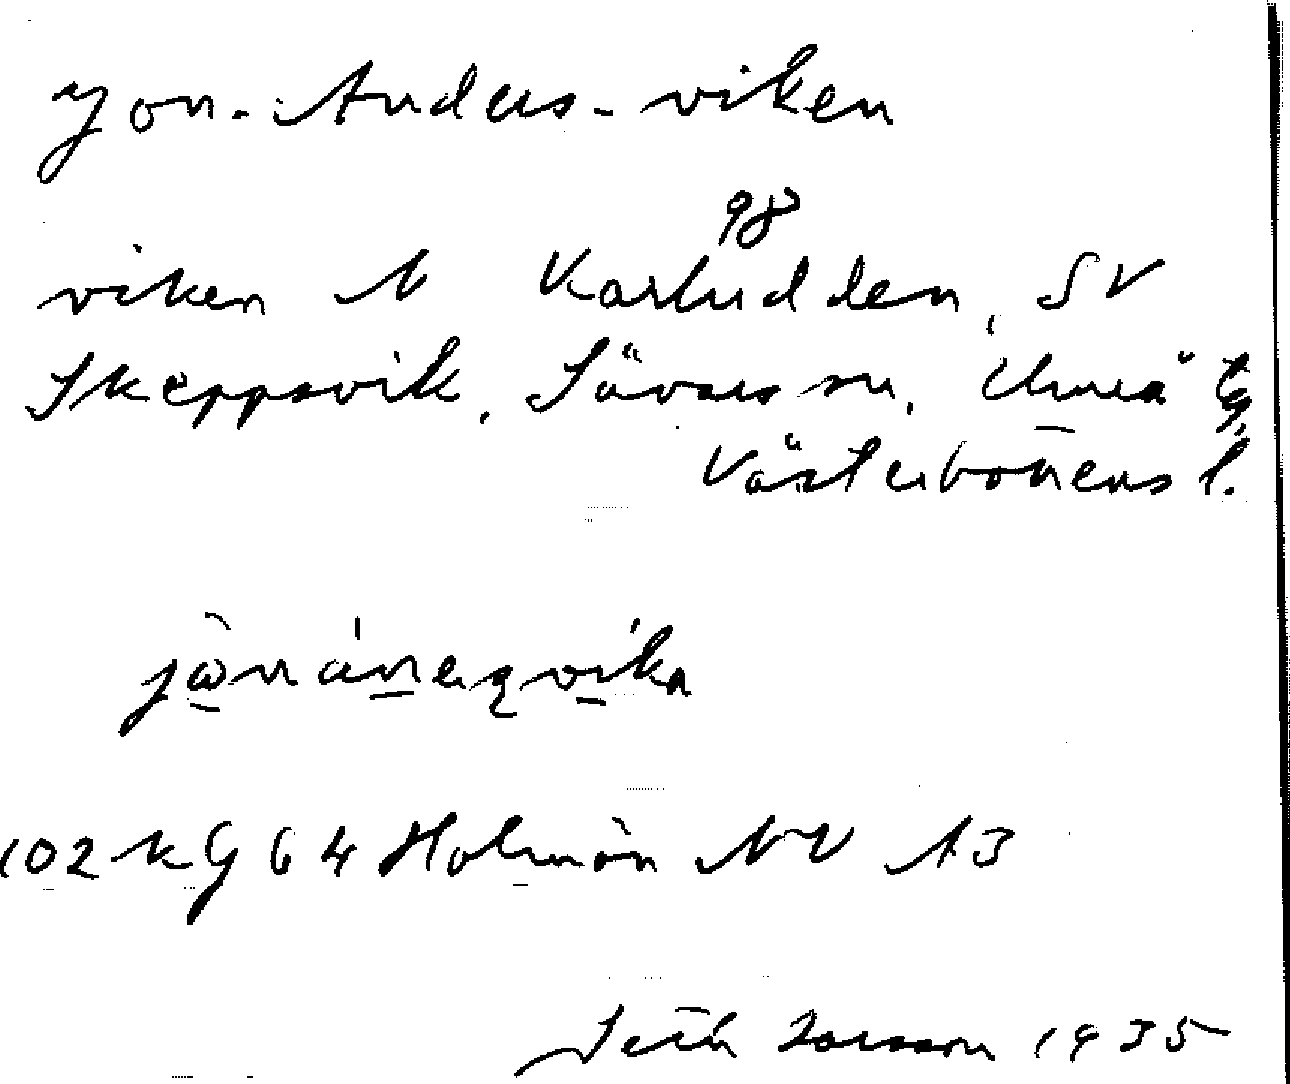 Jon-Anders-viken
98
viken N Karludden, SV
Skeppsvik, Sävars sn, Umeå tg,
Västerbottens l.
102 KG 64 Holmön NV A3
Seth Larsson 1935